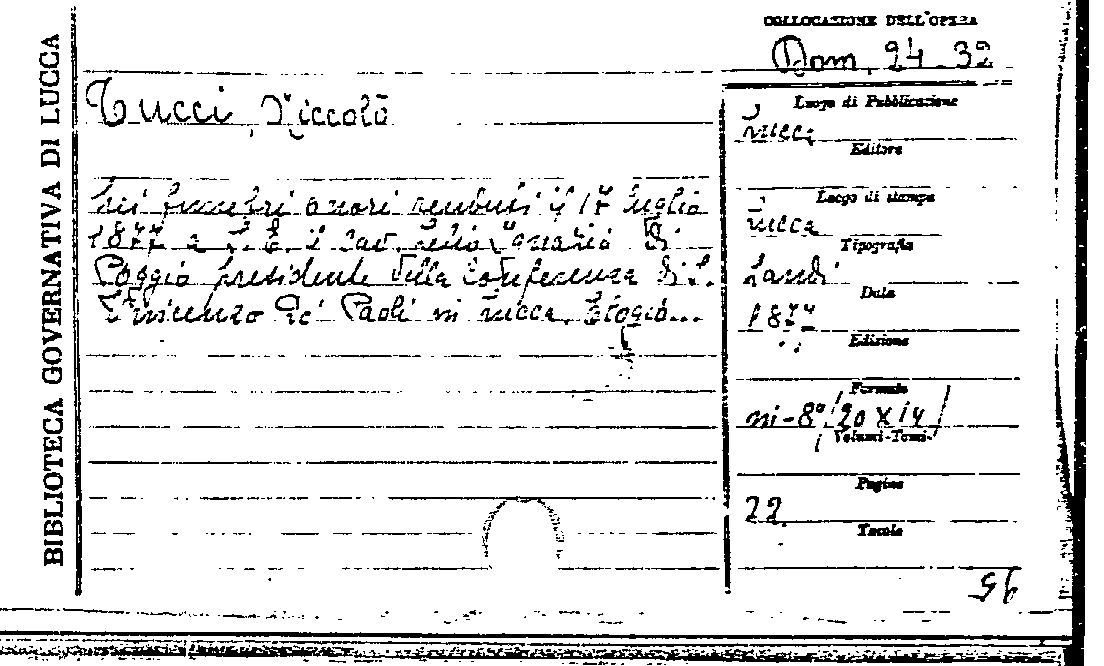 BIBLIOTECA GOVERNATIVA DI LUCCA
COLLOCAZIONE DELL'OPERA
Dom. 24-32
Tucci, Niccolò
Nei funebri onori renduti il 17 luglio
1877 a S. E. il Cav. Di
Poggio presidente della Conferenza di S.
Vincenzo de' Paoli in Lucca. Elogio...
Luogo di Pubblicazione
Lucca
Editore
Luogo di stampa
Lucca
Tipografia
Landi
Data
1877
Edizione
Formato
in-8° /20 x 14/
Volumi-Tomi
Pagine
22
Tavole